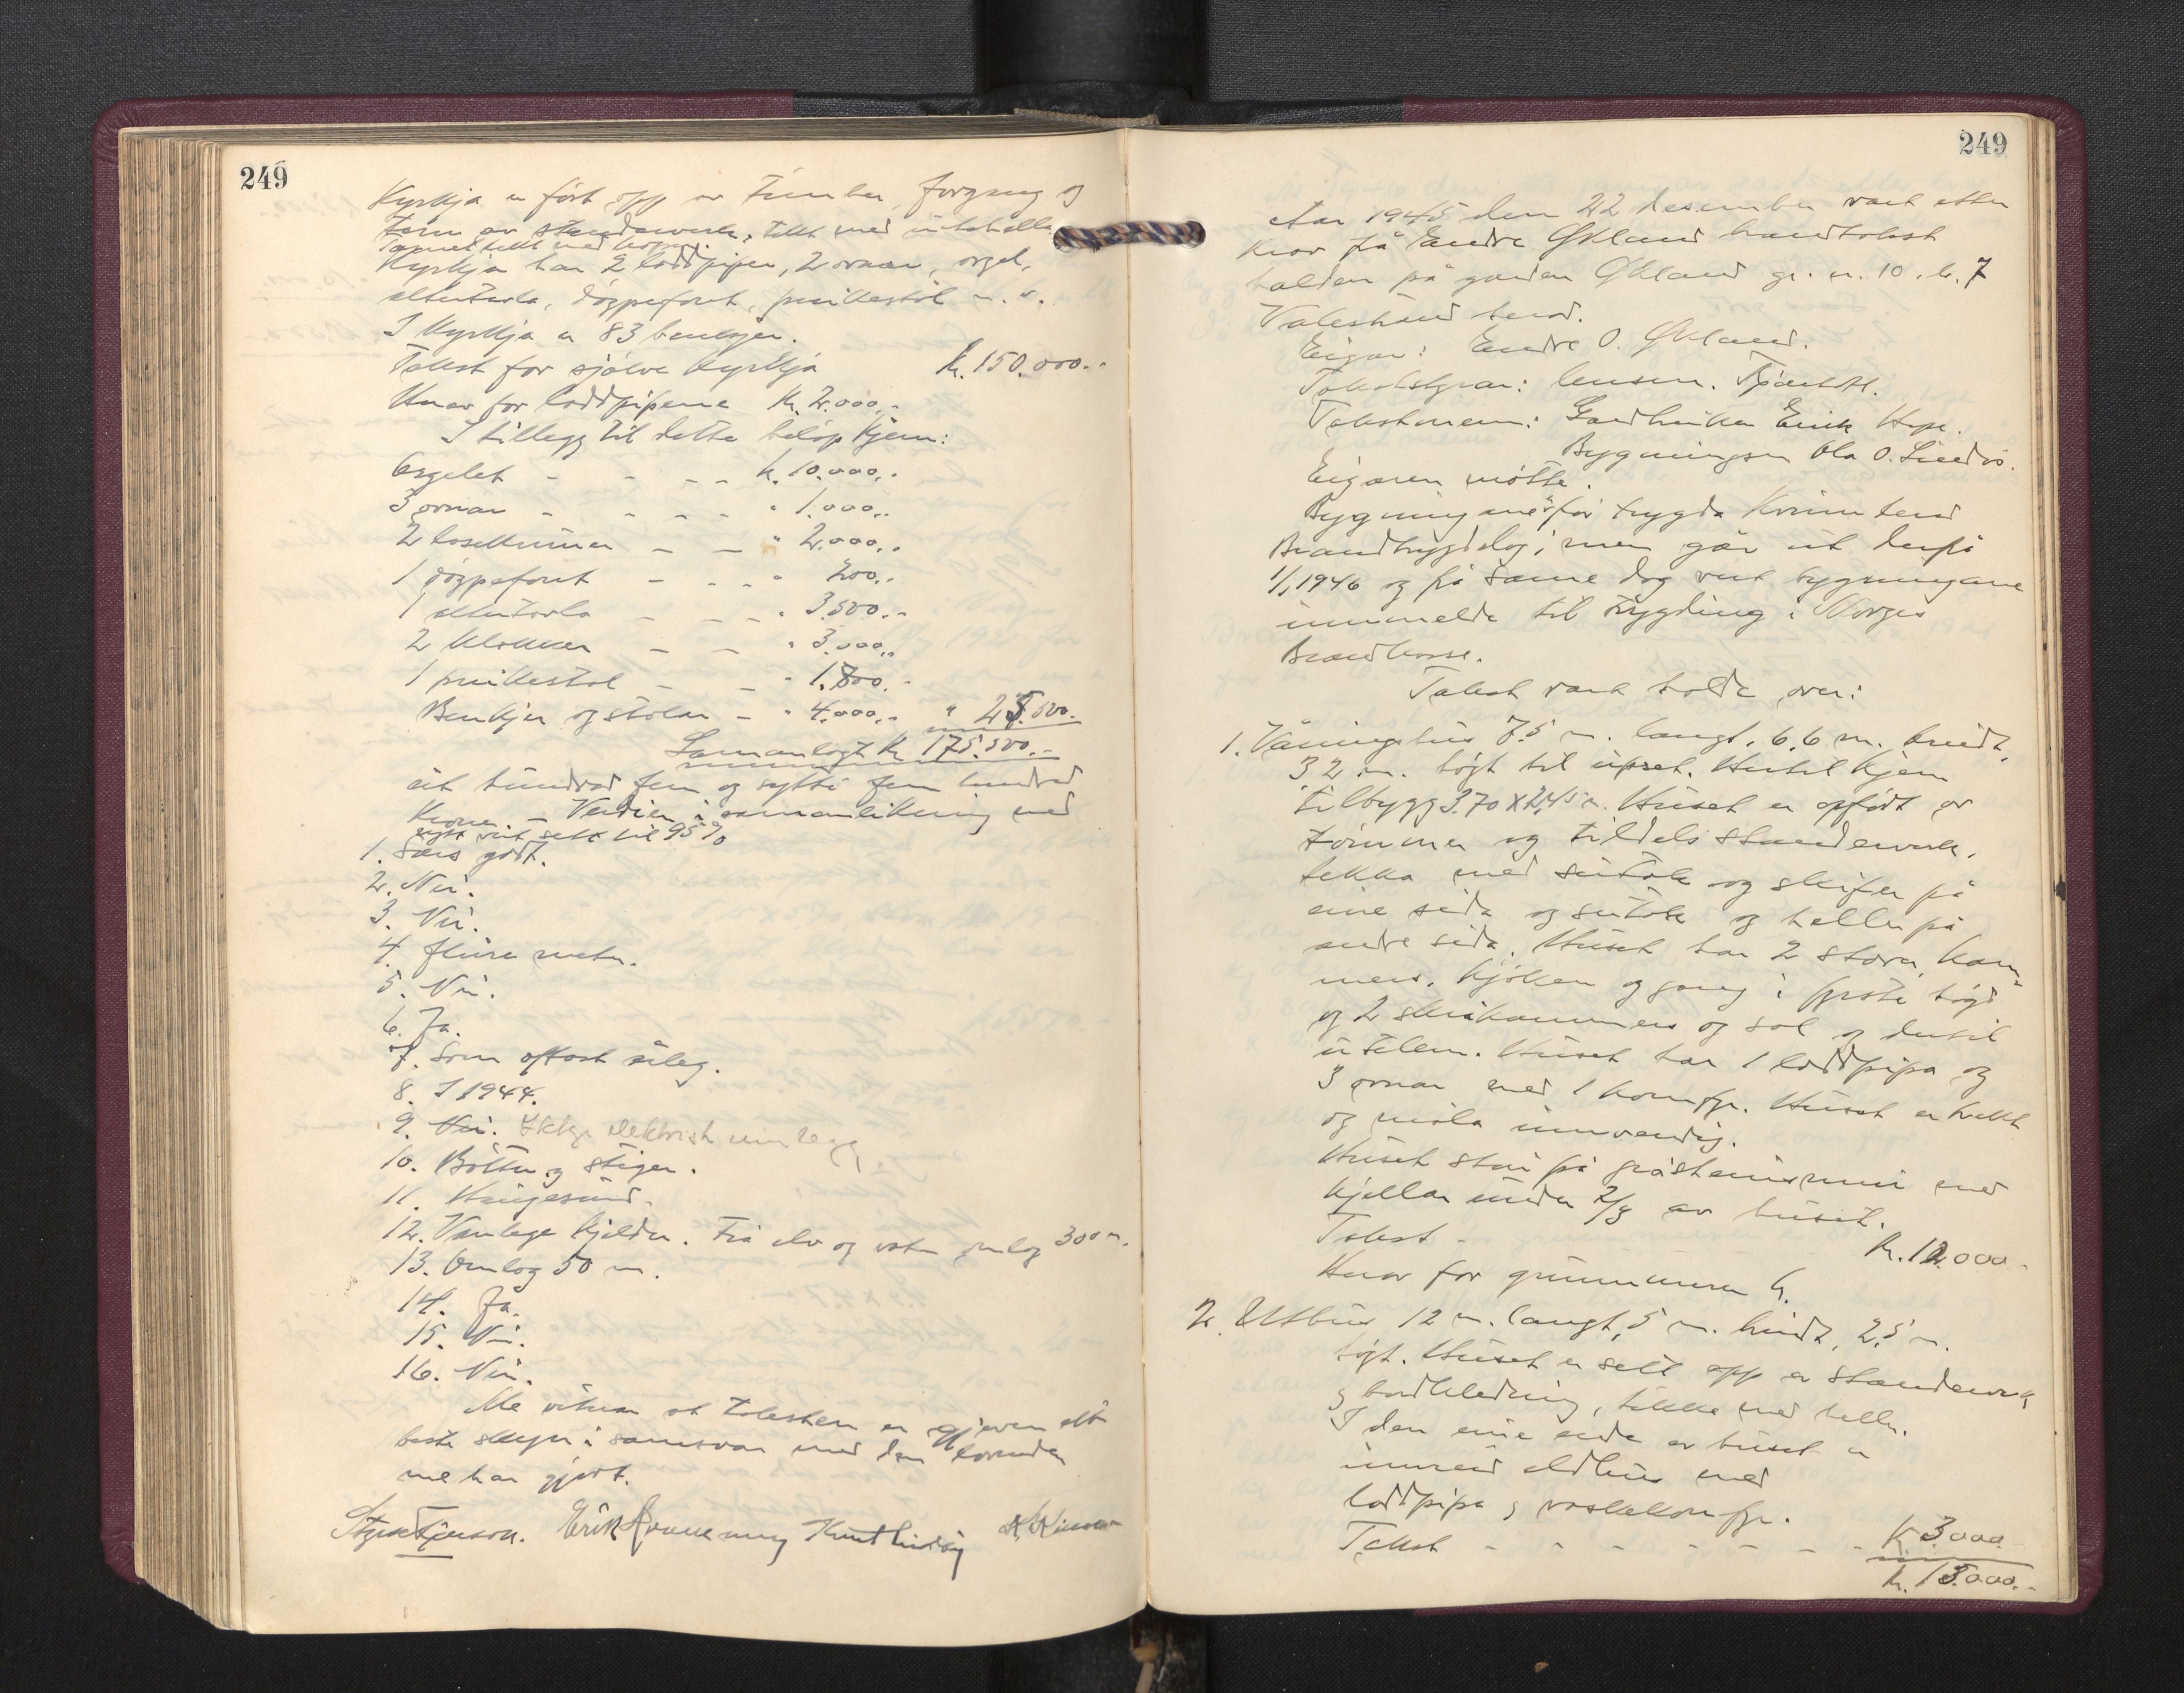 249
Kyrkja er ført opp av timber, forgang og
tårn av standaverk, tekt med
Tårnet tekt med kopar.
Kyrkja har 2 loddpipor, 2 ovnar, orgel,
altartavla, døypefont, preikestol m. v.
I kyrkja er 83 benkjer.
Takst for sjølve kyrkja kr. 150.000.-
Herav for loddpipene kr. 2.000.-
I tillegg til dette beløp kjem:
Orgelet - - - - kr. 10.000.-
3 ovnar - - - - " 1.000.-
2 - - " 2.000.-
1 døypefont - - - " 200.-
1 altartavla - - - " 3.500.-
2 klokker - - " 3.000.-
1 preikestol - - " 1.800.-
Benkjer og stolar - " 4.000.- " 25.500.-
Samanlagt kr. 175.500.-
eit hundrad fem og sytti fem hundrad
kroner. - Verdien i samanlikning med
nytt vert sett til 95%
1. Særs godt.
2. Nei.
3. Nei.
4. Fleire meter.
5. Nei.
6. Ja.
7. Som oftast årleg.
8. I 1944.
9. Nei. Ikkje elektrisk innlegg
10. Bøtter og stigar.
11. Haugesund.
12. Vanlege kjelder. Frå elv og vatn omlag 300 m.
13. Omlag 50 m.
14. Ja.
15. Nei.
16. Nei.
Me vitnar at taksten er gjeven etter
beste skjøn i samsvar med den lovnaden
me har gjort.
Knut Lindøy
249
Aar 1945 den 22 desember vart etter
krav frå Endre Økland brandtakst
halden på garden Økland gr. nr. 10, br. 7
Valestrand herad.
Eigar: Endre O. Økland.
Takststyrar: lensm. Tjernagel.
Takstmenn: Gardbrukar Erik Hope.
Bygningsm. Ola O. Lindø.
Eigaren møtte.
Bygningane før trygda Kvinnherad
Brandtrygdelag, men går ut derfrå
1/1 1946 og frå same dag vert bygningane
innmelde til trygding i Norges
Brandkasse.
Takst vart halde over:
1. Våningshus 7,5 m. langt, 6,6 m. breidt,
3 2 m. høgt til upset. Hertil kjem
tilbygg 3.70 x 2,45 m. Huset er opført av
tømmer og tildels standerverk,
tekka med sutak og skifer på
eine sida og sutak og heller på
andre sida. Huset har 2 stovor, kam-
mers, kjøken og gang i fyrste høgd
og 2 skråkammers og sal og dertil
utelem. Huset har 1 loddpipa og
3 ovnar med 1 komfyr. Huset er trekt
og måla innvendig.
Huset står på gråsteinsmur med
kjellar under 2/3 av huset.
Takst - kr. 12.000.-
Herav for grunnmuren kr.
2. Uthus 12 m. langt, 5 m. breidt, 2,5 m.
høgt. Huset er sett opp av standerverk
og bordkledning, tekka med heller.
I den eine ende av huset er
innreid eldhus med
loddpipa og vaskekomfyr.
Takst - - - - - - - kr. 3.000.-
kr. 15.000.-